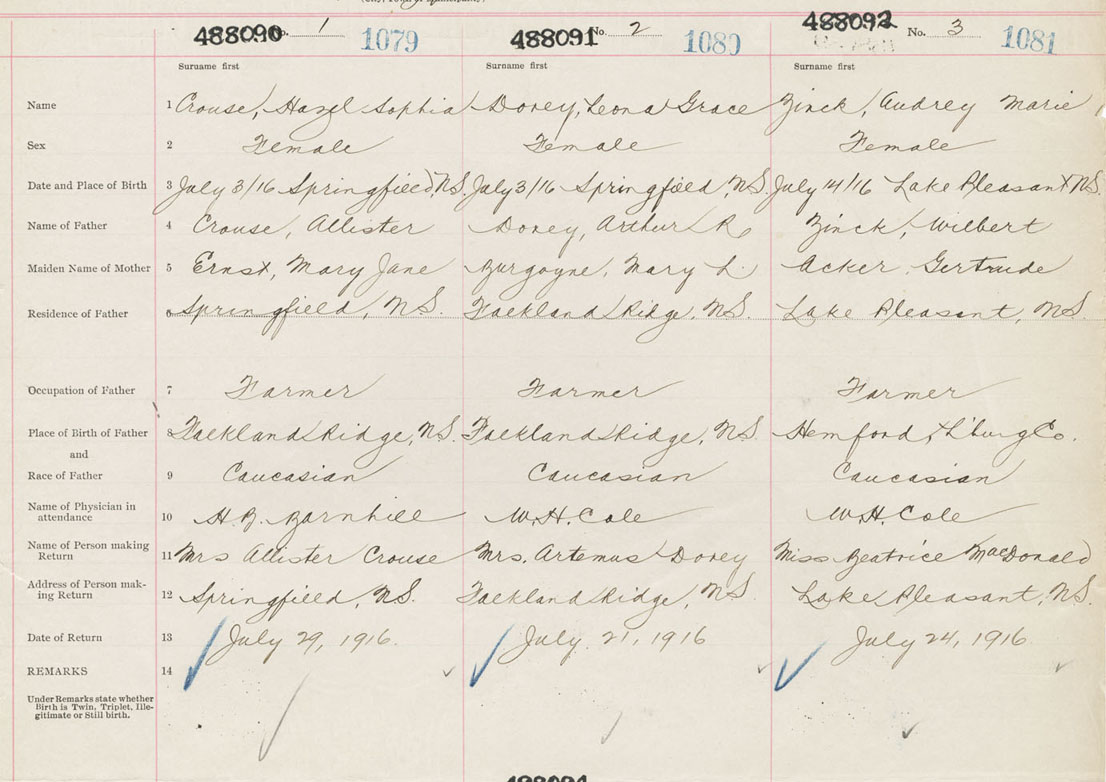 488090 No. 1 1079 488091 No. 2 1080 488092 No. 3 1081
Surname first Surname first Surname first
Name 1 Crouse, Hazel Sophia Dorey, Leona Grace Zinck, Audrey Marie
Sex 2 Female Female Female
Date and Place of Birth 3 July 3/16 Springfield, N.S. July 3/16 Springfield, N.S. July 14/16 Lake Pleasant N.S.
Name of Father 4 Crouse, Allister Dorey, Arthur R. Zinck, Wilbert
Maiden Name of Mother 5 Ernst, Mary Jane Burgoyne, Mary L. Acker, Gertrude
Residence of Father 6 Springfield, N.S. Falkland Ridge, N.S. Lake Pleasant, N.S.
Occupation of Father 7 Farmer Farmer Farmer
Place of Birth of Father 8 Falkland Ridge, N.S. Falkland Ridge, N.S. Hemford, L'burg Co.
and
Race of Father 9 Caucasian Caucasian Caucasian
Name of Physician in
attendance 10 H.B. Barnhill W.H. Cole W.H. Cole
Name of Person making
Return 11 Mrs Allister Crouse Mrs. Artemus Dorey Miss Beatrice MacDonald
Address of Person mak-
ing Return 12 Springfield, N.S. Falkland Ridge, N.S. Lake Pleasant, N.S.
Date of Return 13 July 29, 1916. July 21, 1916 July 24, 1916
REMARKS 14
Under Remarks state whether
Birth is Twin, Triplet, Ille-
gitimate or Still birth.